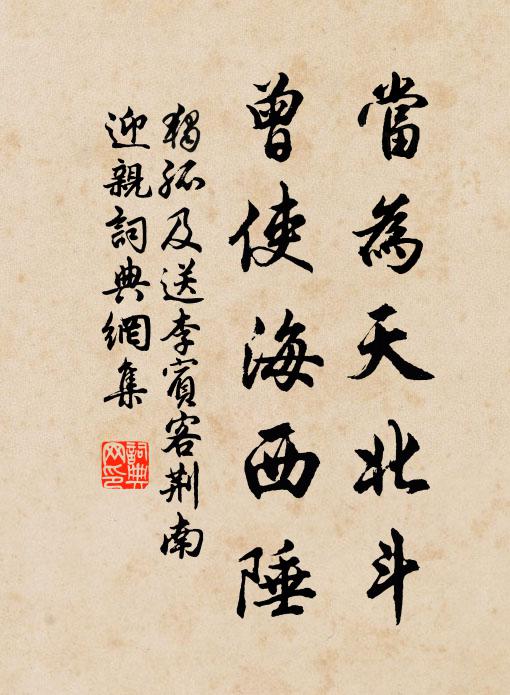 當為天北斗
曾使海西陲
獨孤及送李賓客荆南
迎親詞典網集
詞典
网印